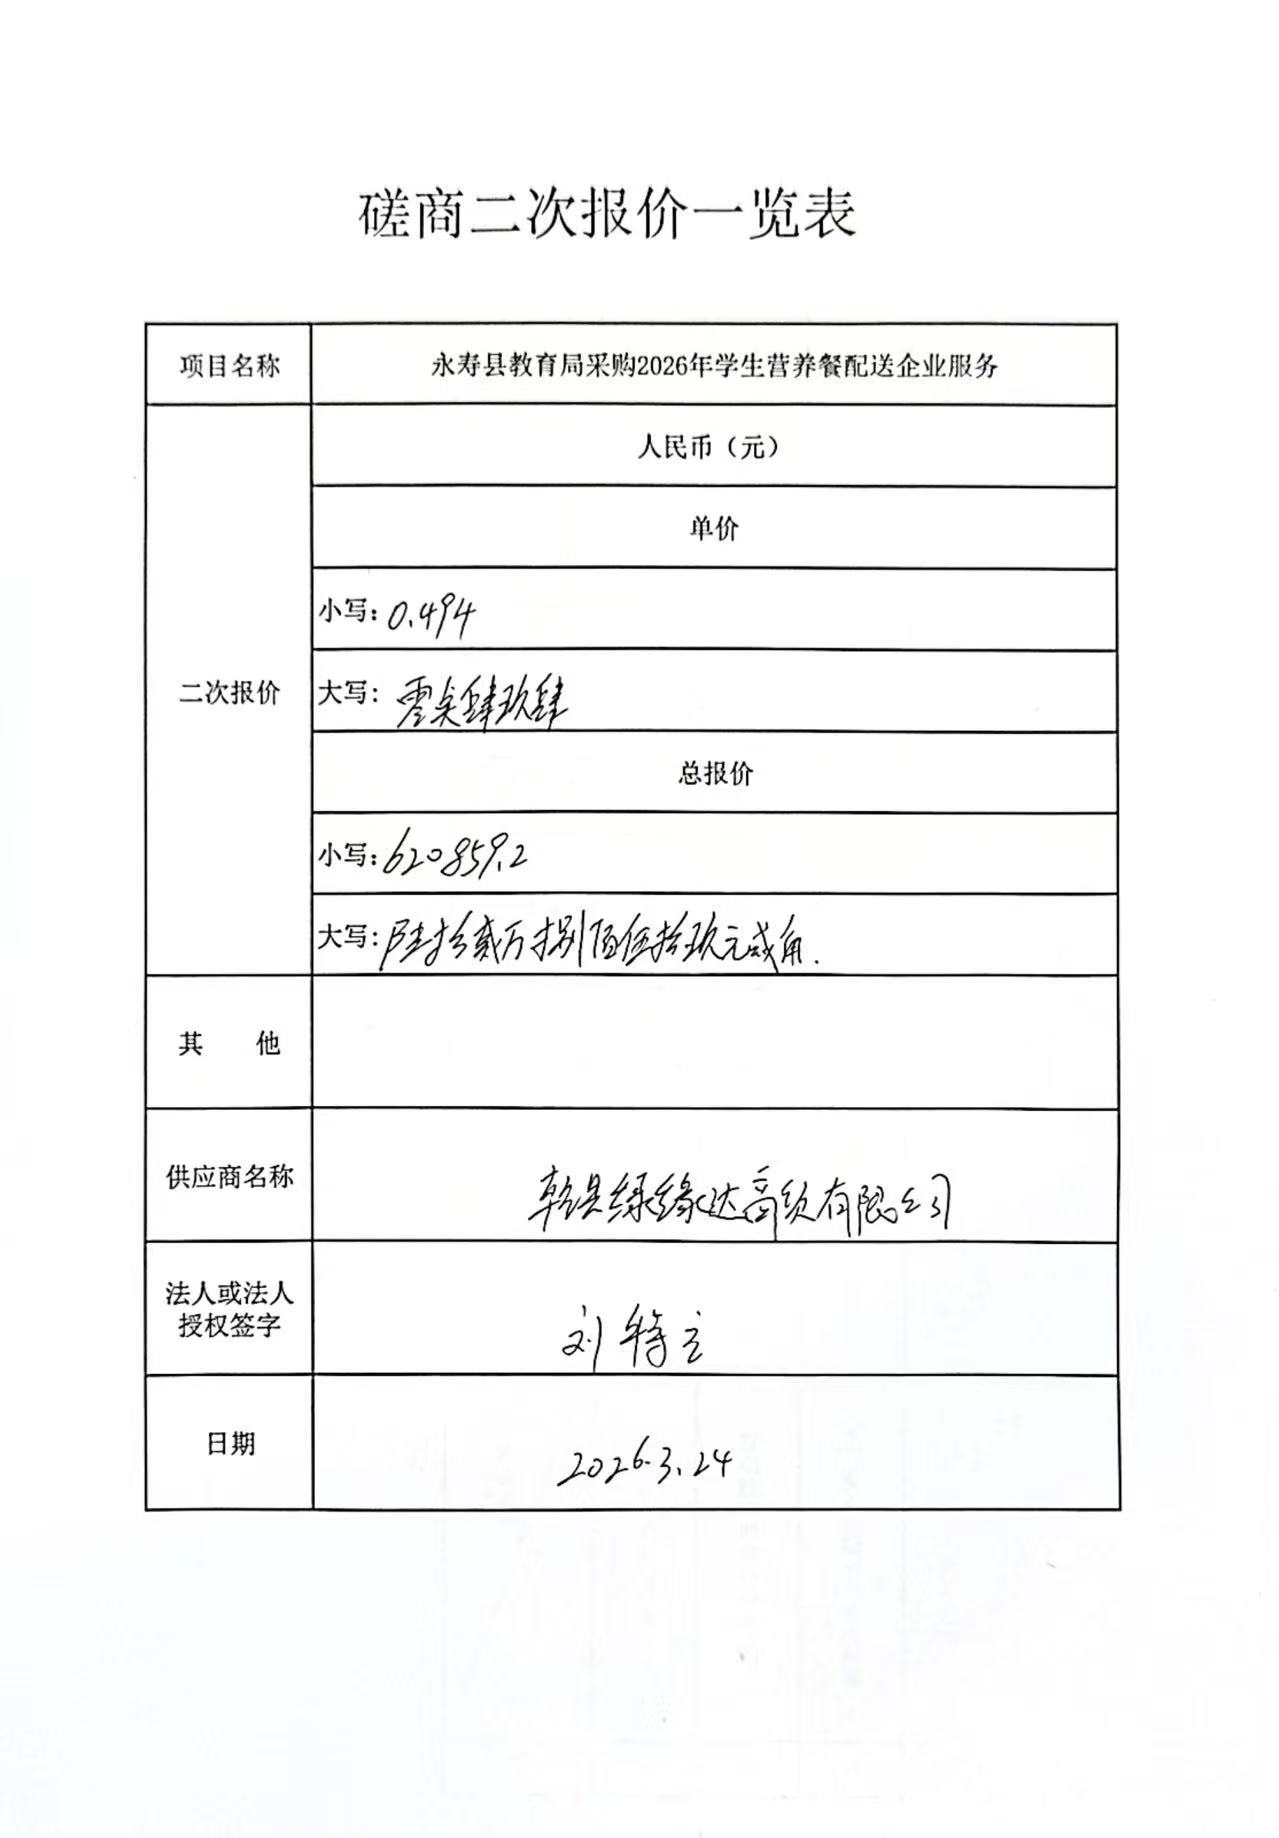 磋商二次报价一览表
项目名称
永寿县教育局采购2026年学生营养餐配送企业服务
二次报价
人民币（元）
单价
小写：0.494
大写：零点肆玖肆
总报价
小写：620859.2
大写：陆拾贰万捌佰伍拾玖元贰角.
其 他
供应商名称
乾县绿缘达商贸有限公司
法人或法人
授权签字
刘 立
日期
2026.3.24